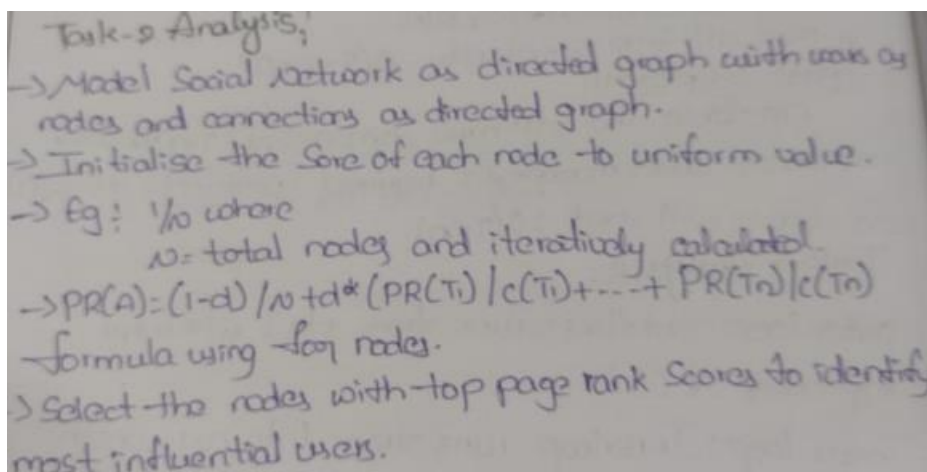 Task-2 Analysis:
→ Model Social Network as directed graph with users as
nodes and connections as directed graph.
→ Initialise the Sore of each node to uniform value.
→ Eg: 1/n where
N= total nodes and iteratively calculated
→ PR(A)=(1-d)/N+d*(PR(T1)/c(T1)+----+ PR(Tn)/c(Tn)
formula using nodes.
→ Select the nodes with top page rank Scores to identify
most influential users.